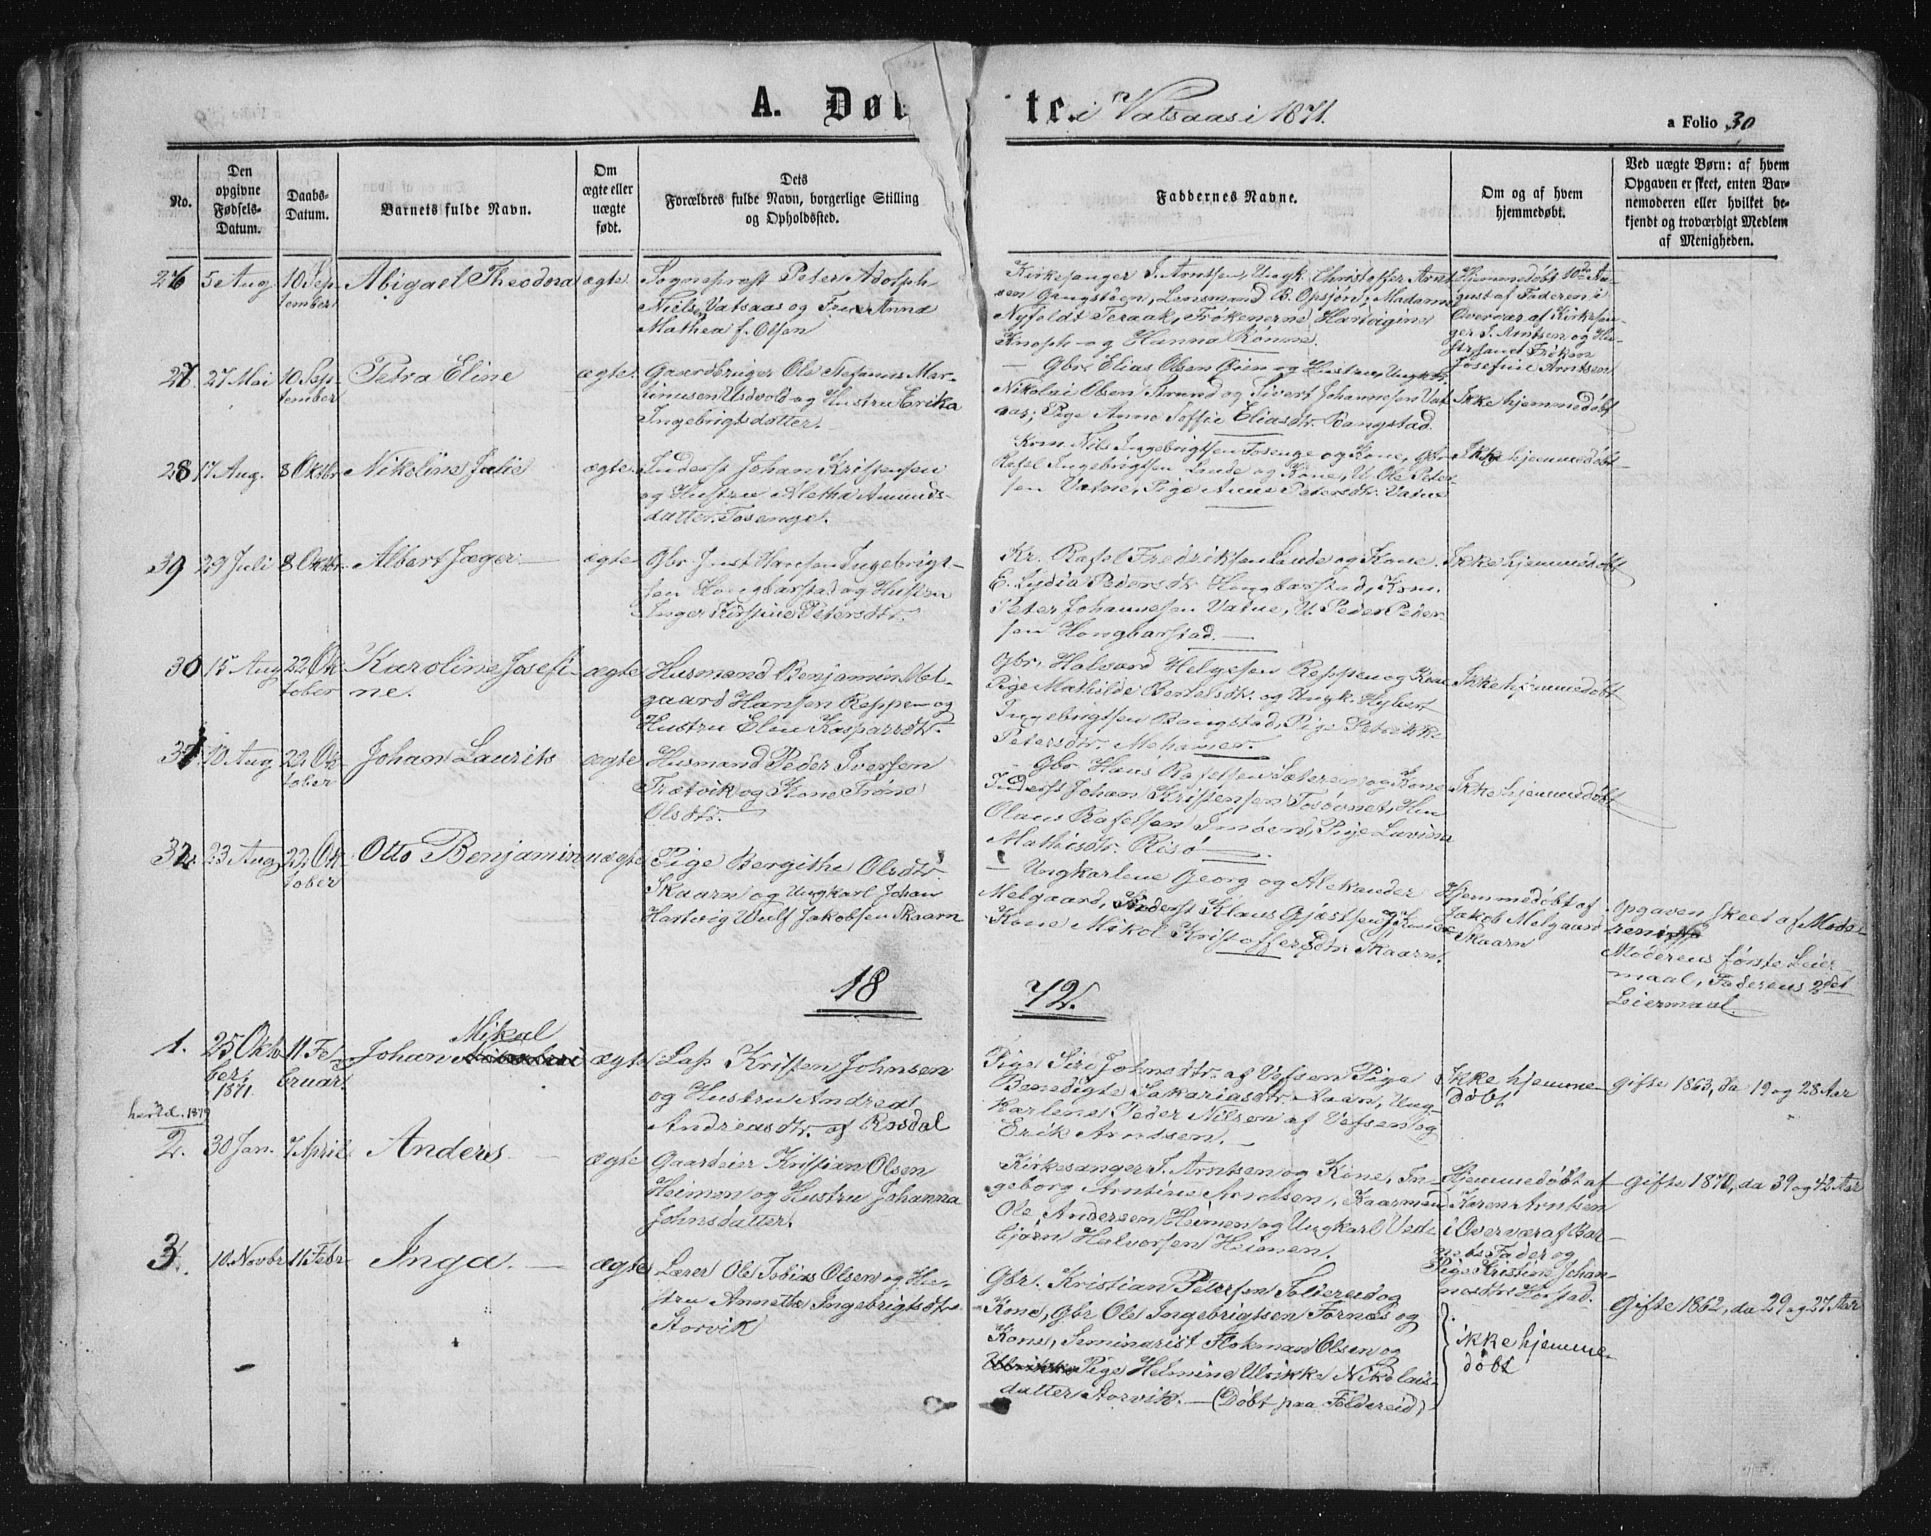 A. Døbte i Vatsaas i 1871.
a Folio 30
No.
Den opgivne Fødsels-Datum.
Daabs-Datum.
Barnets fulde Navn.
Om ægte eller uægte født.
Dets Forældres fulde Navn, borgerlige Stilling og Opholdssted.
Faddernes Navne.
Om og af hvem hjemmedøbt.
Ved uægte Børn: af hvem
Opgaven er skeet, enten Bar-
nemoderen eller hvilket be-
kjendt og troværdigt Medlem
af Menigheden.
26 5 Aug 10 September Abigael Theodora ægte
Sogneprest Peter Adolph
Niels Vatsaas og Frue Anna
Mathea f. Olsen
Kirkesanger J. Arntsen, Ungk. Christoffer Arnt
sen Gangstøen, Lensmand B. Opsjøn, Madame
Nyfeldt Teraak, Frøknerne Hartvigine
Knoph og Hanna Rømme.
Hjemmedøbt 10de Au-
gust af Faderen i
Overvær af Kirkesan-
ger J. Arntsen og Hu-
stru samt Frøken
Josefine Arntsen
27 27 Mai 10 September Petra Eline ægte.
Gaardbruger Ole Mar-
tinusen Usdvold og Hustru Erika
Ingebrigtsdatter.
Gbr. Elias Olsen Øien og Hustru, Ungk.
Nikolai Olsen Strand og Sivert Johannesen Vat
aas, Pige Anne Soffie Eliasdtr. Bangstad.
Ikke hjemmedøbt
28 17 Aug. 8 Oktbr Nikoline Julie ægte.
Inderst Johan Kristensen
og Hustru Aletha Amunds-
datter Tosenge.
Kom. Nils Ingebrigtsen Tosenge og Kone, Gbr
Rafel Ingebrigtsen Lande og Kone, U. Ole Peter
sen Vatne, Pige Anne Petersdtr. Vatne
Ikke hjemmedøbt
39 29 Juli 8 Oktbr. Albert Jæger. ægte
Gbr Just Hansen Ingebrigt-
sen Hongbarstad og Hustru
Inger Kirstine Petersdtr.
Kr. Rafel Fredriksen Lande og Kone.
E. Lydia Pedersdtr Hongbarstad, Kom.
Peter Johannesen Vatne, U. Peder Peder
sen Hongbarstad.
Ikke hjemmedøbt
30 15 Aug 22 Oktober Karoline Josefi-
ne. ægte
Husmand Benjamin Mel-
gaard Hansen Reppen og
Hustru Elen Kasparsdtr.
Gbr. Halvard Helgesen Reppen og Kone
Pige Mathilde Bertelsdtr. og Ungk. Hybert
Ingebrigtsen Bangstad, Pige Petrikke
Petersdtr. Mehamer.
Ikke hjemmedøbt
31. 10 Aug 22 Oktober Johan Laurits ægte
Husmand Peder Iversen
Trætvik og Kone Trone
Olsdtr.
Gbr Hans Rafelsen Sæteren og Kone
Inderst Johan Kristensen Tosbotnet, Hm
Olaus Rafelsen Imøen, Pige Lavina
Mathisdtr. Risø
Ikke hjemmedøbt
32. 23 Aug 22 Oktober Otto Benjamin uægte
Pige Bergithe Olsdtr.
Skaarn og Ungkarl Johan
Hartvig Wulf Jakobsen Skaarn
Ungkarlene Georg og Aleksander
Melgaard, Inderst Klaus Gjæstsen og
Kone Mikol Kristoffersdtr. Skaarn.
Hjemmedøbt af
Jakob Melgaard
Skaarn
Opgaven skeet af Mode-
ren
Moderens første Leier-
maal, Faderens 2det
Leiermaal.
18 72.
1. 25 Oktober 1871. 11 Februar Johan Mikal ægte
Las Kristen Johnsen
og Hustru Andrea
Andreasdtr. af Rosdal
Pige Siri Johnsdtr. af Vefsen Pige
Benedigte Sakariasdtr. Aaen, Ung-
karlene Peder Nilsen af Vefsen og
Erik Arntsen.
Ikke hjemme-
døbt
Gifte 1863, da 19 og 28 Aar
1872
2. 30 Jan. 7 April Anders ægte
Gaardeier Kristian Olsen
Heimen og Hustru Johanna
Johnsdatter.
Kirkesanger J. Arntsen og Kone, In-
geborg Arntine Arntsen, Kaarmand
Ole Andersen Heimen og Ungkarl Uste
bjørn Halvorsen Heimen.
Hjemmedøbt af
Karen Arntsen
i Overvær af Bar-
nets Fader og
Pige Kristine Johan-
nesdtr Horstad.
Gifte 1870, da 39 og 42 Aar
3. 10 Novbr 11 Febr Inga. ægte
Lærer Ole Tobias Olsen og Hu-
stru Annette Ingebrigtsdtr.
Storvik
Gbr. Kristian Petersen Solierud og
Kone, Gbr Ole Ingebrigtsen Fornæs og
Kone, Seminarist Hokman Olsen og
Pige Helmine Ulrikke Nikolais-
datter Storvik. — (Døbt paa Foldereid)
ikke hjemme-
døbt
Gifte 1862, da 29 og 27 Aar